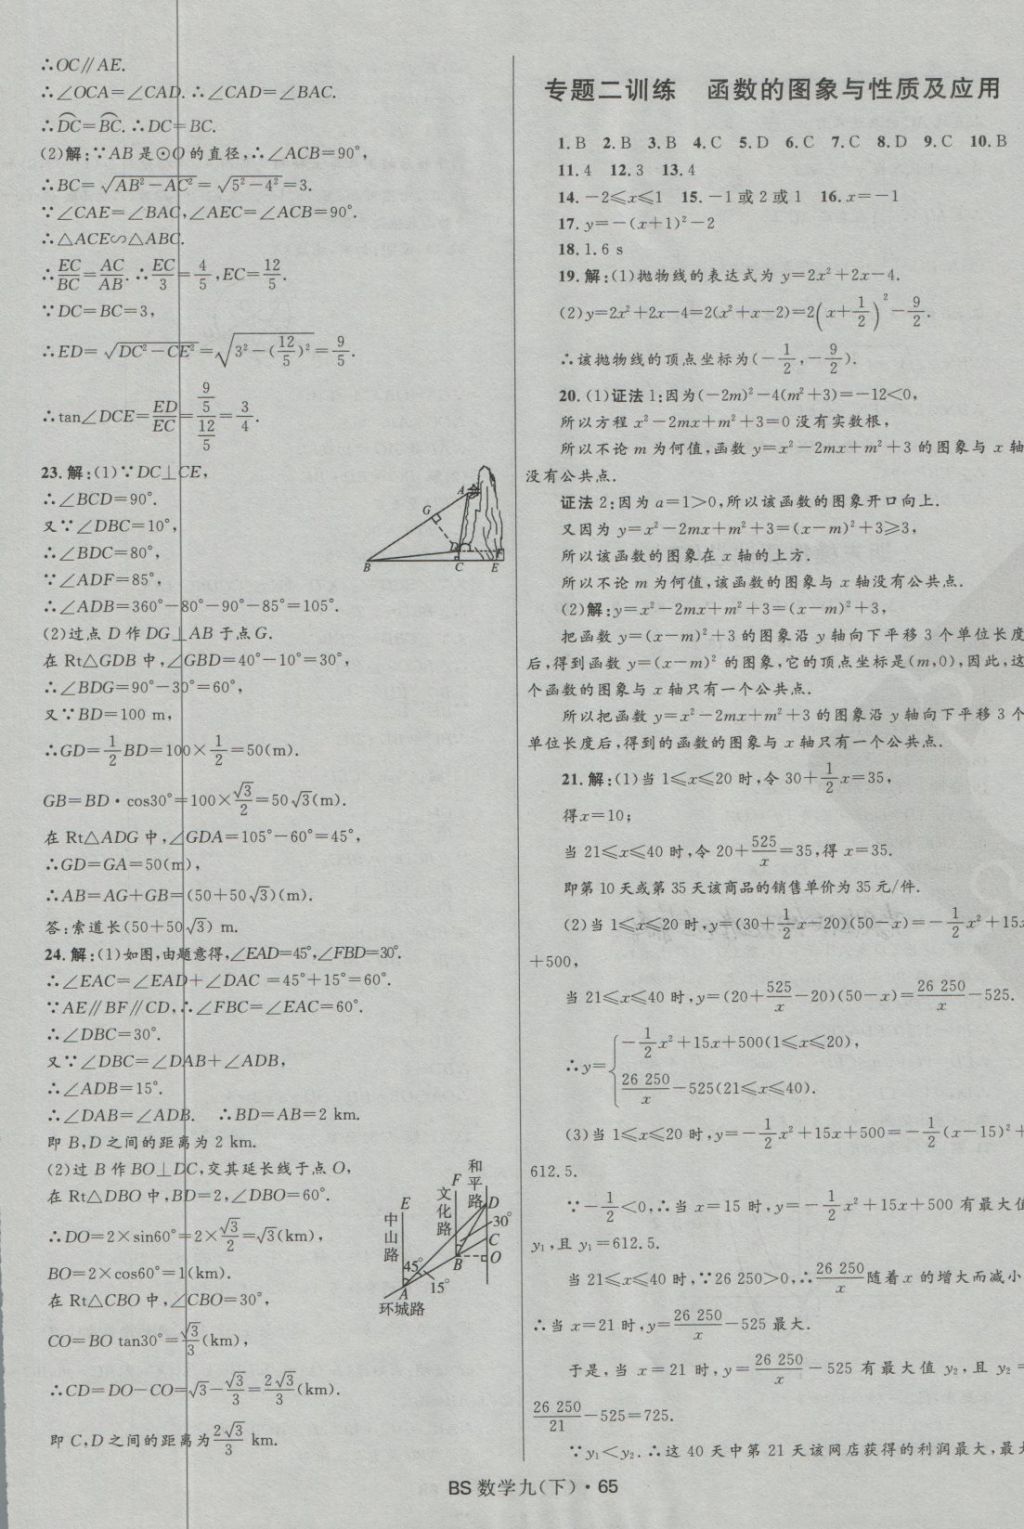 ∴OC∥AE.
∴∠OCA=∠CAD.∴∠CAD=∠BAC.
∴DC⌒=BC⌒.∴DC=BC.
(2)解:∵AB是⊙O的直径,∴∠ACB=90°,
∴BC=√(AB²-AC²)=√(5²-4²)=3.
∵∠CAE=∠BAC,∠AEC=∠ACB=90°.
∴△ACE∽△ABC.
∴EC/BC=AC/AB.∴EC/3=4/5,EC=12/5.
∵DC=BC=3,
∴ED=√(DC²-CE²)=√(3²-(12/5)²)=9/5.
∴tan∠DCE=ED/EC=(9/5)/(12/5)=3/4.
23.解:(1)∵DC⊥CE,
∴∠BCD=90°.
又∵∠DBC=10°,
∴∠BDC=80°,
∵∠ADF=85°,
∴∠ADB=360°-80°-90°-85°=105°.
(2)过点D作DG⊥AB于点G.
在Rt△GDB中,∠GBD=40°-10°=30°,
∴∠BDG=90°-30°=60°,
又∵BD=100 m,
∴GD=1/2BD=100×1/2=50(m).
GB=BD·cos30°=100×√3/2=50√3(m).
在Rt△ADG中,∠GDA=105°-60°=45°,
∴GD=GA=50(m),
∴AB=AG+GB=(50+50√3)(m).
答:索道长(50+50√3) m.
A
G
D
B
C
E
24.解:(1)如图,由题意得,∠EAD=45°,∠FBD=30°.
∴∠EAC=∠EAD+∠DAC=45°+15°=60°.
∵AE∥BF∥CD,∴∠FBC=∠EAC=60°.
∴∠DBC=30°.
又∵∠DBC=∠DAB+∠ADB,
∴∠ADB=15°.
∴∠DAB=∠ADB. ∴BD=AB=2 km.
即B,D之间的距离为2 km.
(2)过B作BO⊥DC,交其延长线于点O,
在Rt△DBO中,BD=2,∠DBO=60°.
∴DO=2×sin60°=2×√3/2=√3(km),
BO=2×cos60°=1(km).
在Rt△CBO中,∠CBO=30°,
CO=BO tan30°=√3/3(km),
∴CD=DO-CO=√3-√3/3=2√3/3(km).
即C,D之间的距离为2√3/3 km.
和平路
F
文化路
E
中山路
D
30°
C
O
B
45°
15°
A
环城路
专题二训练 函数的图象与性质及应用
1.B 2.B 3.B 4.C 5.D 6.C 7.C 8.D 9.C 10.B
11.4 12.3 13.4
14.-2≤x≤1 15.-1或2或1 16.x=-1
17.y=-(x+1)²-2
18.1.6 s
19.解:(1)抛物线的表达式为y=2x²+2x-4.
(2)y=2x²+2x-4=2(x²+x-2)=2(x+1/2)²-9/2.
∴该抛物线的顶点坐标为(-1/2,-9/2).
20.(1)证法1:因为(-2m)²-4(m²+3)=-12<0,
所以方程x²-2mx+m²+3=0没有实数根,
所以不论m为何值,函数y=x²-2mx+m²+3的图象与x轴
没有公共点.
证法2:因为a=1>0,所以该函数的图象开口向上.
又因为y=x²-2mx+m²+3=(x-m)²+3≥3,
所以该函数的图象在x轴的上方.
所以不论m为何值,该函数的图象与x轴没有公共点.
(2)解:y=x²-2mx+m²+3=(x-m)²+3,
把函数y=(x-m)²+3的图象沿y轴向下平移3个单位长度
后,得到函数y=(x-m)²的图象,它的顶点坐标是(m,0),因此,这
个函数的图象与x轴只有一个公共点.
所以把函数y=x²-2mx+m²+3的图象沿y轴向下平移3个
单位长度后,得到的函数的图象与x轴只有一个公共点.
21.解:(1)当1≤x≤20时,令30+1/2x=35,
得x=10;
当21≤x≤40时,令20+525/x=35,得x=35.
即第10天或第35天该商品的销售单价为35元/件.
(2)当1≤x≤20时,y=(30+1/2x-20)(50-x)=-1/2x²+15x
+500,
当21≤x≤40时,y=(20+525/x-20)(50-x)=26 250/x-525.
∴y={-1/2x²+15x+500(1≤x≤20),
26 250/x-525(21≤x≤40).
(3)当1≤x≤20时,y=-1/2x²+15x+500=-1/2(x-15)²+
612.5.
∵-1/2<0,∴当x=15时,y=-1/2x²+15x+500有最大值
y₁,且y₁=612.5.
当21≤x≤40时,∵26 250>0,∴26 250/x随着x的增大而减小,
∴当x=21时,y=26 250/x-525最大.
于是,当x=21时,y=26 250/x-525有最大值y₂,且y₂=
26 250/21-525=725.
∵y₁<y₂.∴这40天中第21天该网店获得的利润最大,最大
BS数学九(下)·65